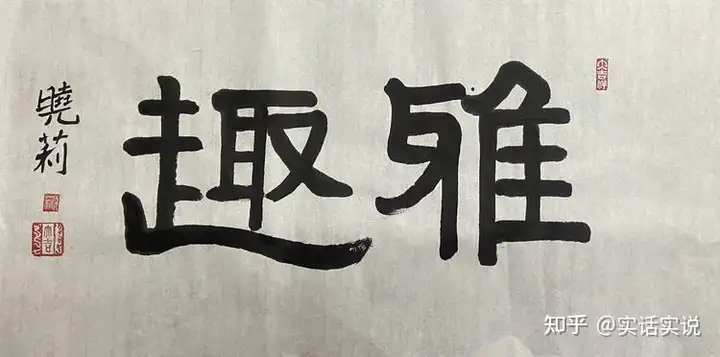 雅趣
曉莉
知乎 @实话实说